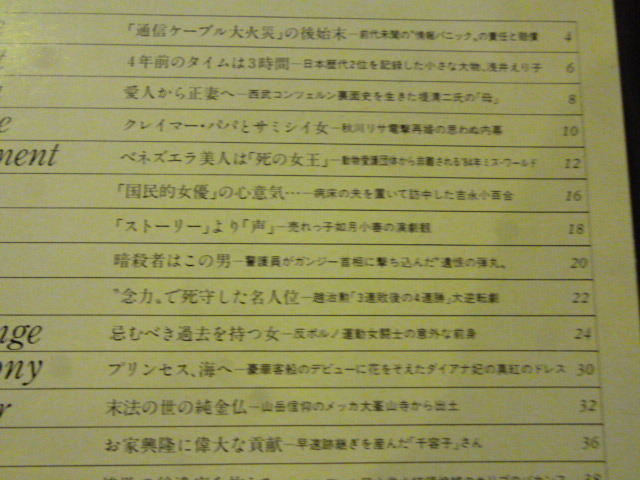 「通信ケーブル大火災」の後始末―前代未聞の"情報パニック"の責任と賠償 4
4年前のタイムは3時間―日本歴代2位を記録した小さな大物、浅井えり子 6
愛人から正妻へ―西武コンツェルン裏面史を生きた堤清二氏の「母」 8
クレイマー・パパとサミシイ女―秋川リサ電撃再婚の思わぬ内幕 10
ment ベネズエラ美人は「死の女王」―動物愛護団体から非難される'84年ミス・ワールド 12
「国民的女優」の心意気…―病床の夫を置いて訪中した吉永小百合 16
「ストーリー」より「声」―売れっ子如月小春の演劇観 18
暗殺者はこの男―警護員がガンジー首相に撃ち込んだ"遺恨の弾丸" 20
"念力"で死守した名人位―趙治勲「3連敗後の4連勝」大逆転劇 22
nge 忌むべき過去を持つ女―反ポルノ運動女闘士の意外な前身 24
ony プリンセス、海へ―豪華客船のデビューに花をそえたダイアナ妃の真紅のドレス 30
r 末法の世の純金仏―山岳信仰のメッカ大峯山寺から出土 32
お家興隆に偉大な貢献―早速跡継ぎを産んだ「千容子」さん 36